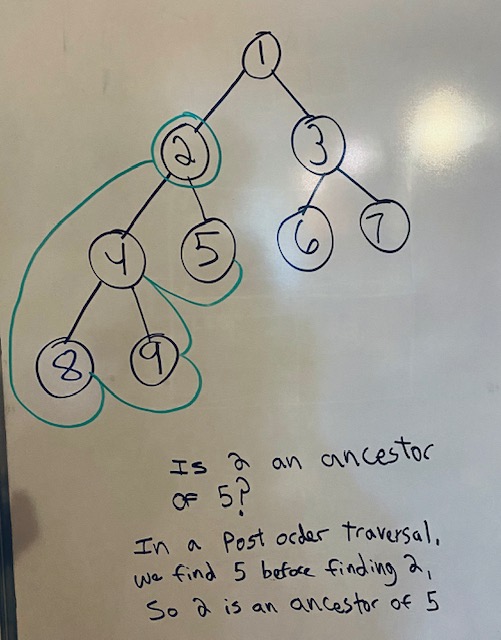 1
2 3
4 5 6 7
8 9
Is 2 an ancestor
of 5?
In a Post order traversal,
we find 5 before finding 2,
So 2 is an ancestor of 5